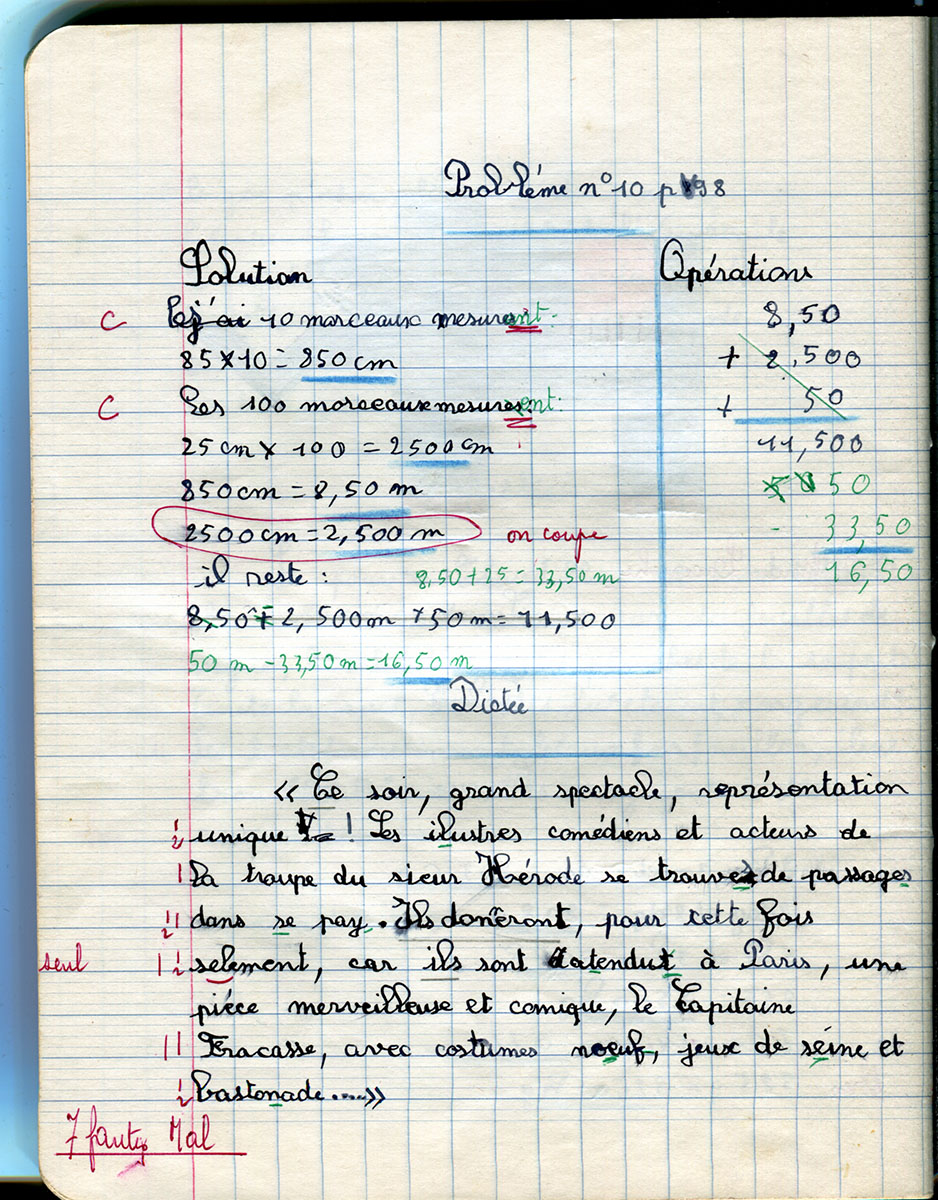 Probléme n° 10 p 198
Solution
Opérations
C
j'ai 10 morceaux mesurent:
85 × 10 = 850 cm
C
Les 100 morceaux mesurent:
25 cm × 100 = 2500 cm
850 cm = 8,50 m
2500 cm = 2,500 m on coupe
il reste : 8,50 + 25 = 33,50 m
8,50 + 2,500 m + 50 m = 11,500
50 m - 33,50 m = 16,50 m
8,50
+ 2,500
+ 50
11,500
50
- 33,50
16,50
Dictée
« Ce soir, grand spectacle, représentation
½ unique ! Les ilustres comédiens et acteurs de
| la troupe du sieur Hérode se trouve de passages
|½ dans se pay. Ils donêront, pour cette fois
seul |½ selement, car ils sont atendut à Paris, une
piéce merveilleuse et comique, le Capitaine
|| Fracasse, avec costumes noeuf, jeux de séine et
½ bastonade....»
7 fautes Mal